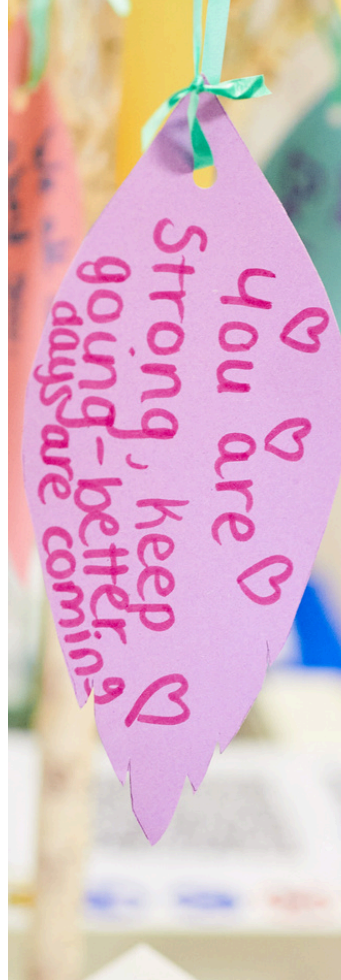 You are
Strong, keep
going - better
days are coming